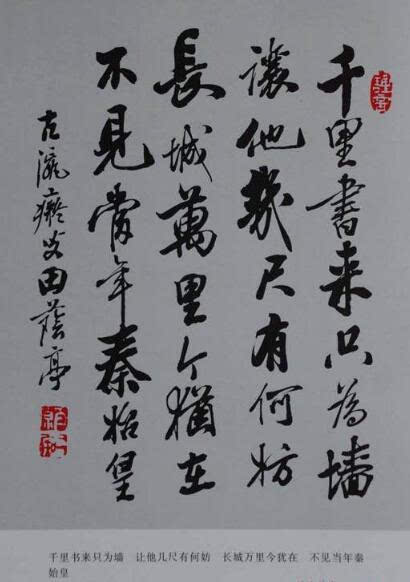 千里書来只为墙
讓他幾尺有何妨
長城萬里今猶在
不見當年秦始皇
古瀛癡叟田蔭亭
千里书来只为墙 让他几尺有何妨 长城万里今犹在 不见当年秦
始皇